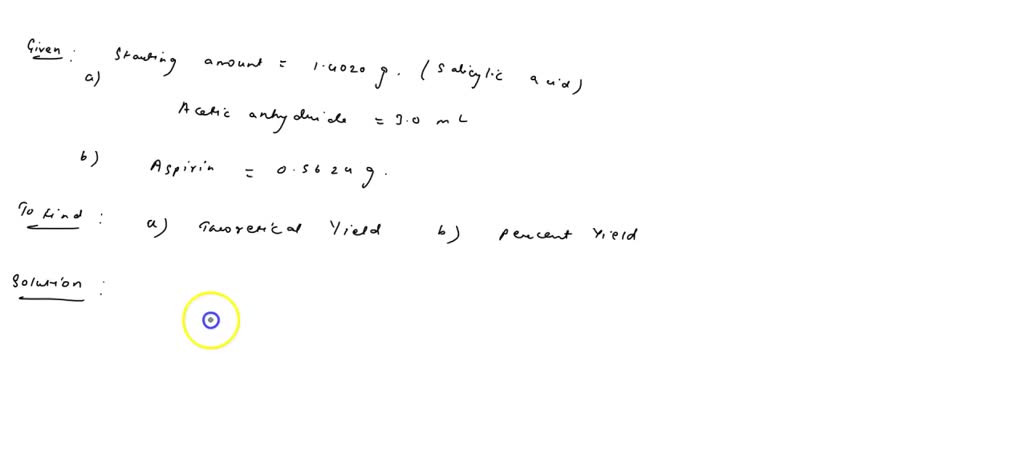 Given :
a) Starting amount = 1.4020 g. (Salicylic acid)
Acetic anhydride = 3.0 mL
b) Aspirin = 0.5624 g.
To find : a) Theoretical Yield b) Percent Yield
Solution :